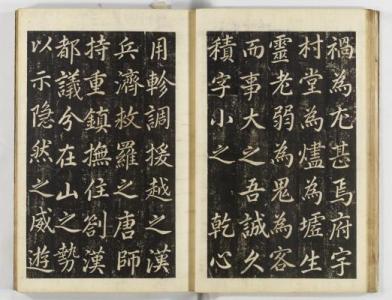 禍為尤甚焉府宇
村堂為燼為墟生
靈老弱為鬼為客
而事大之吾誠久
積字小之 乾心
用軫調援越之漢
兵濟救羅之唐師
持重鎮撫住劄漢
都議分在山之勢
以示隐然之威遊